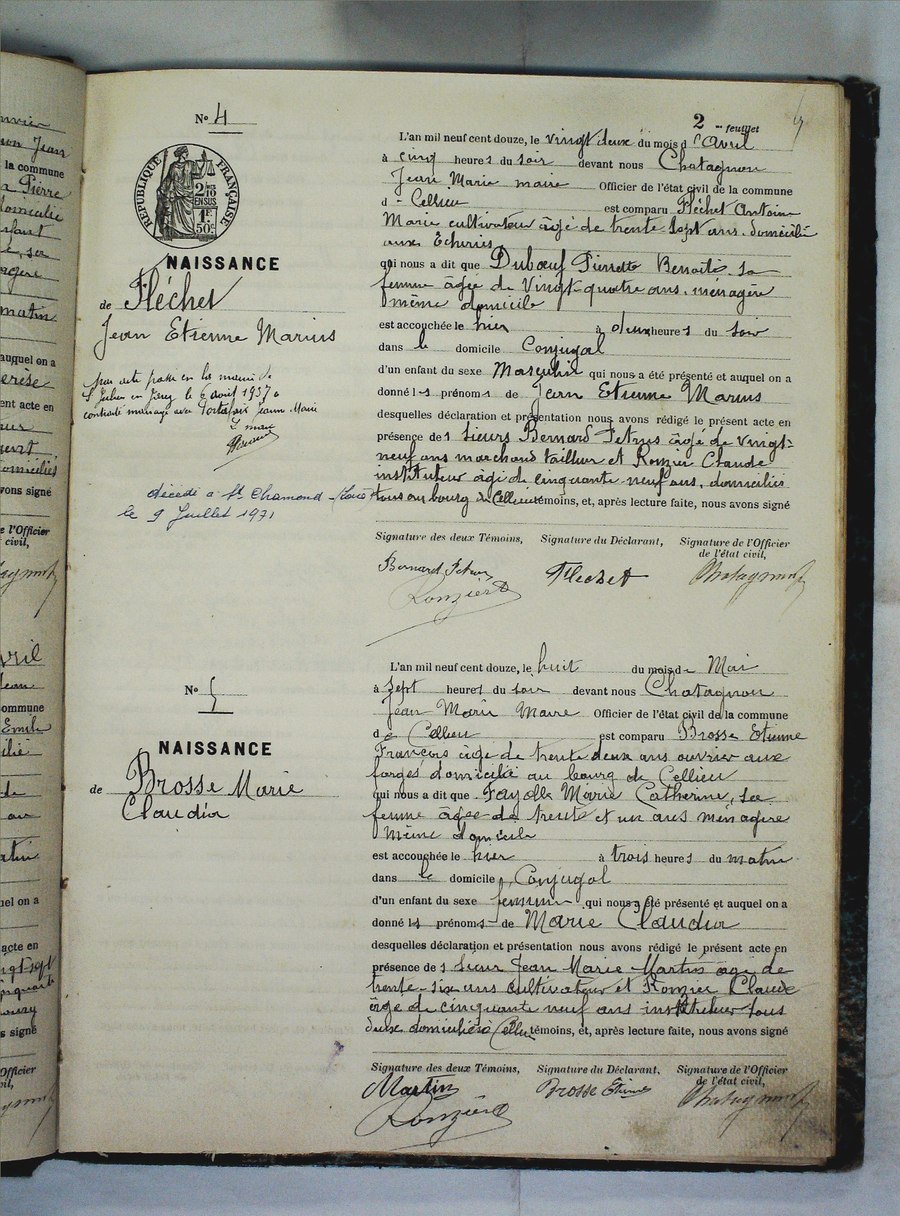 N° 4
2 - feuillet
RÉPUBLIQUE FRANÇAISE
2/10
EN SUS
1F.
50c
NAISSANCE
de Fléchet
Jean Etienne Marius
par acte passé en la mairie de
St Julien en Jarez le 6 août 1937 a
contracté mariage avec Jeanne Marie
Le maire
décédé à St Chamond (Loire)
le 9 Juillet 1971
L'an mil neuf cent douze, le vingt deux du mois d'Avril
à cinq heures du soir devant nous Chatagnon
Jean Marie maire Officier de l'état civil de la commune
d - Cellieu est comparu Fléchet Antoine
Marie cultivateur âgé de trente sept ans, domicilié
aux Echeries
qui nous a dit que Dubœuf Pierrette Benoite sa
femme âgée de Vingt-quatre ans, ménagère
même domicile
est accouchée le hier à deux heures du soir
dans le domicile Conjugal
d'un enfant du sexe Masculin qui nous a été présenté et auquel on a
donné les prénoms de Jean Etienne Marius
desquelles déclaration et présentation nous avons rédigé le présent acte en
présence des Sieurs Bernard Petrus âgé de vingt-
neuf ans marchand tailleur et Ronzier Claude
instituteur âgé de cinquante neuf ans, domiciliés
tous au bourg de Cellieu témoins, et, après lecture faite, nous avons signé
Signature des deux Témoins, Signature du Déclarant, Signature de l'Officier
de l'état civil,
Bernard Petrus Flechet Chatagnon
Ronzier
N° 5
NAISSANCE
de Brosse Marie
Claudia
L'an mil neuf cent douze, le huit du mois de Mai
à sept heures du soir devant nous Chatagnon
Jean Marie Maire Officier de l'état civil de la commune
de Cellieu est comparu Brosse Etienne
François âgé de trente deux ans ouvrier aux
forges domicilié au bourg de Cellieu
qui nous a dit que Fayolle Marie Catherine, sa
femme âgée de trente et un ans ménagère
même domicile
est accouchée le hier à trois heures du matin
dans le domicile Conjugal
d'un enfant du sexe féminin qui nous a été présenté et auquel on a
donné les prénoms de Marie Claudia
desquelles déclaration et présentation nous avons rédigé le présent acte en
présence des Sieur Jean Marie Martin âgé de
trente-six ans cultivateur et Ronzier Claude
âgé de cinquante neuf ans instituteur tous
deux domiciliés à Cellieu témoins, et, après lecture faite, nous avons signé
Signature des deux Témoins, Signature du Déclarant, Signature de l'Officier
de l'état civil,
Martin Brosse Etienne Chatagnon
Ronzier